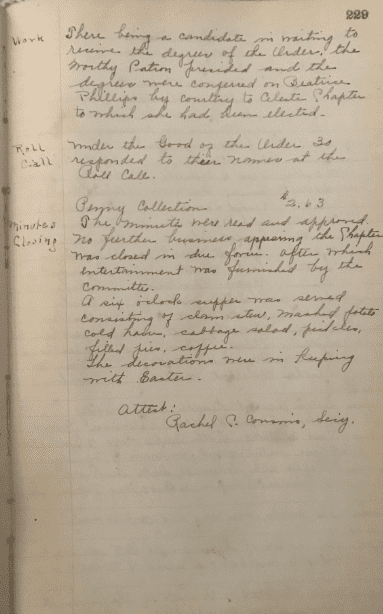 229
Work
There being a candidate in waiting to
receive the degrees of the Order, the
Worthy Patron presided and the
degrees were confered on Beatrice
Phillips by courtesy to Celeste Chapter
to which she had been elected.
Roll
Call
Under the Good of the Order 30
responded to their names at the
Roll Call.
Penny Collection $2.63
Minutes
The minutes were read and approved.
Closing
No further business appearing the Chapter
was closed in due form. After which
entertainment was furnished by the
committee.
A six o'clock supper was served
consisting of clam stew, mashed potato
cold ham, cabbage salad, pickles,
filled pies, coffee.
The decorations were in keeping
with Easter.
Attest:
Rachel Cousins, Secy.